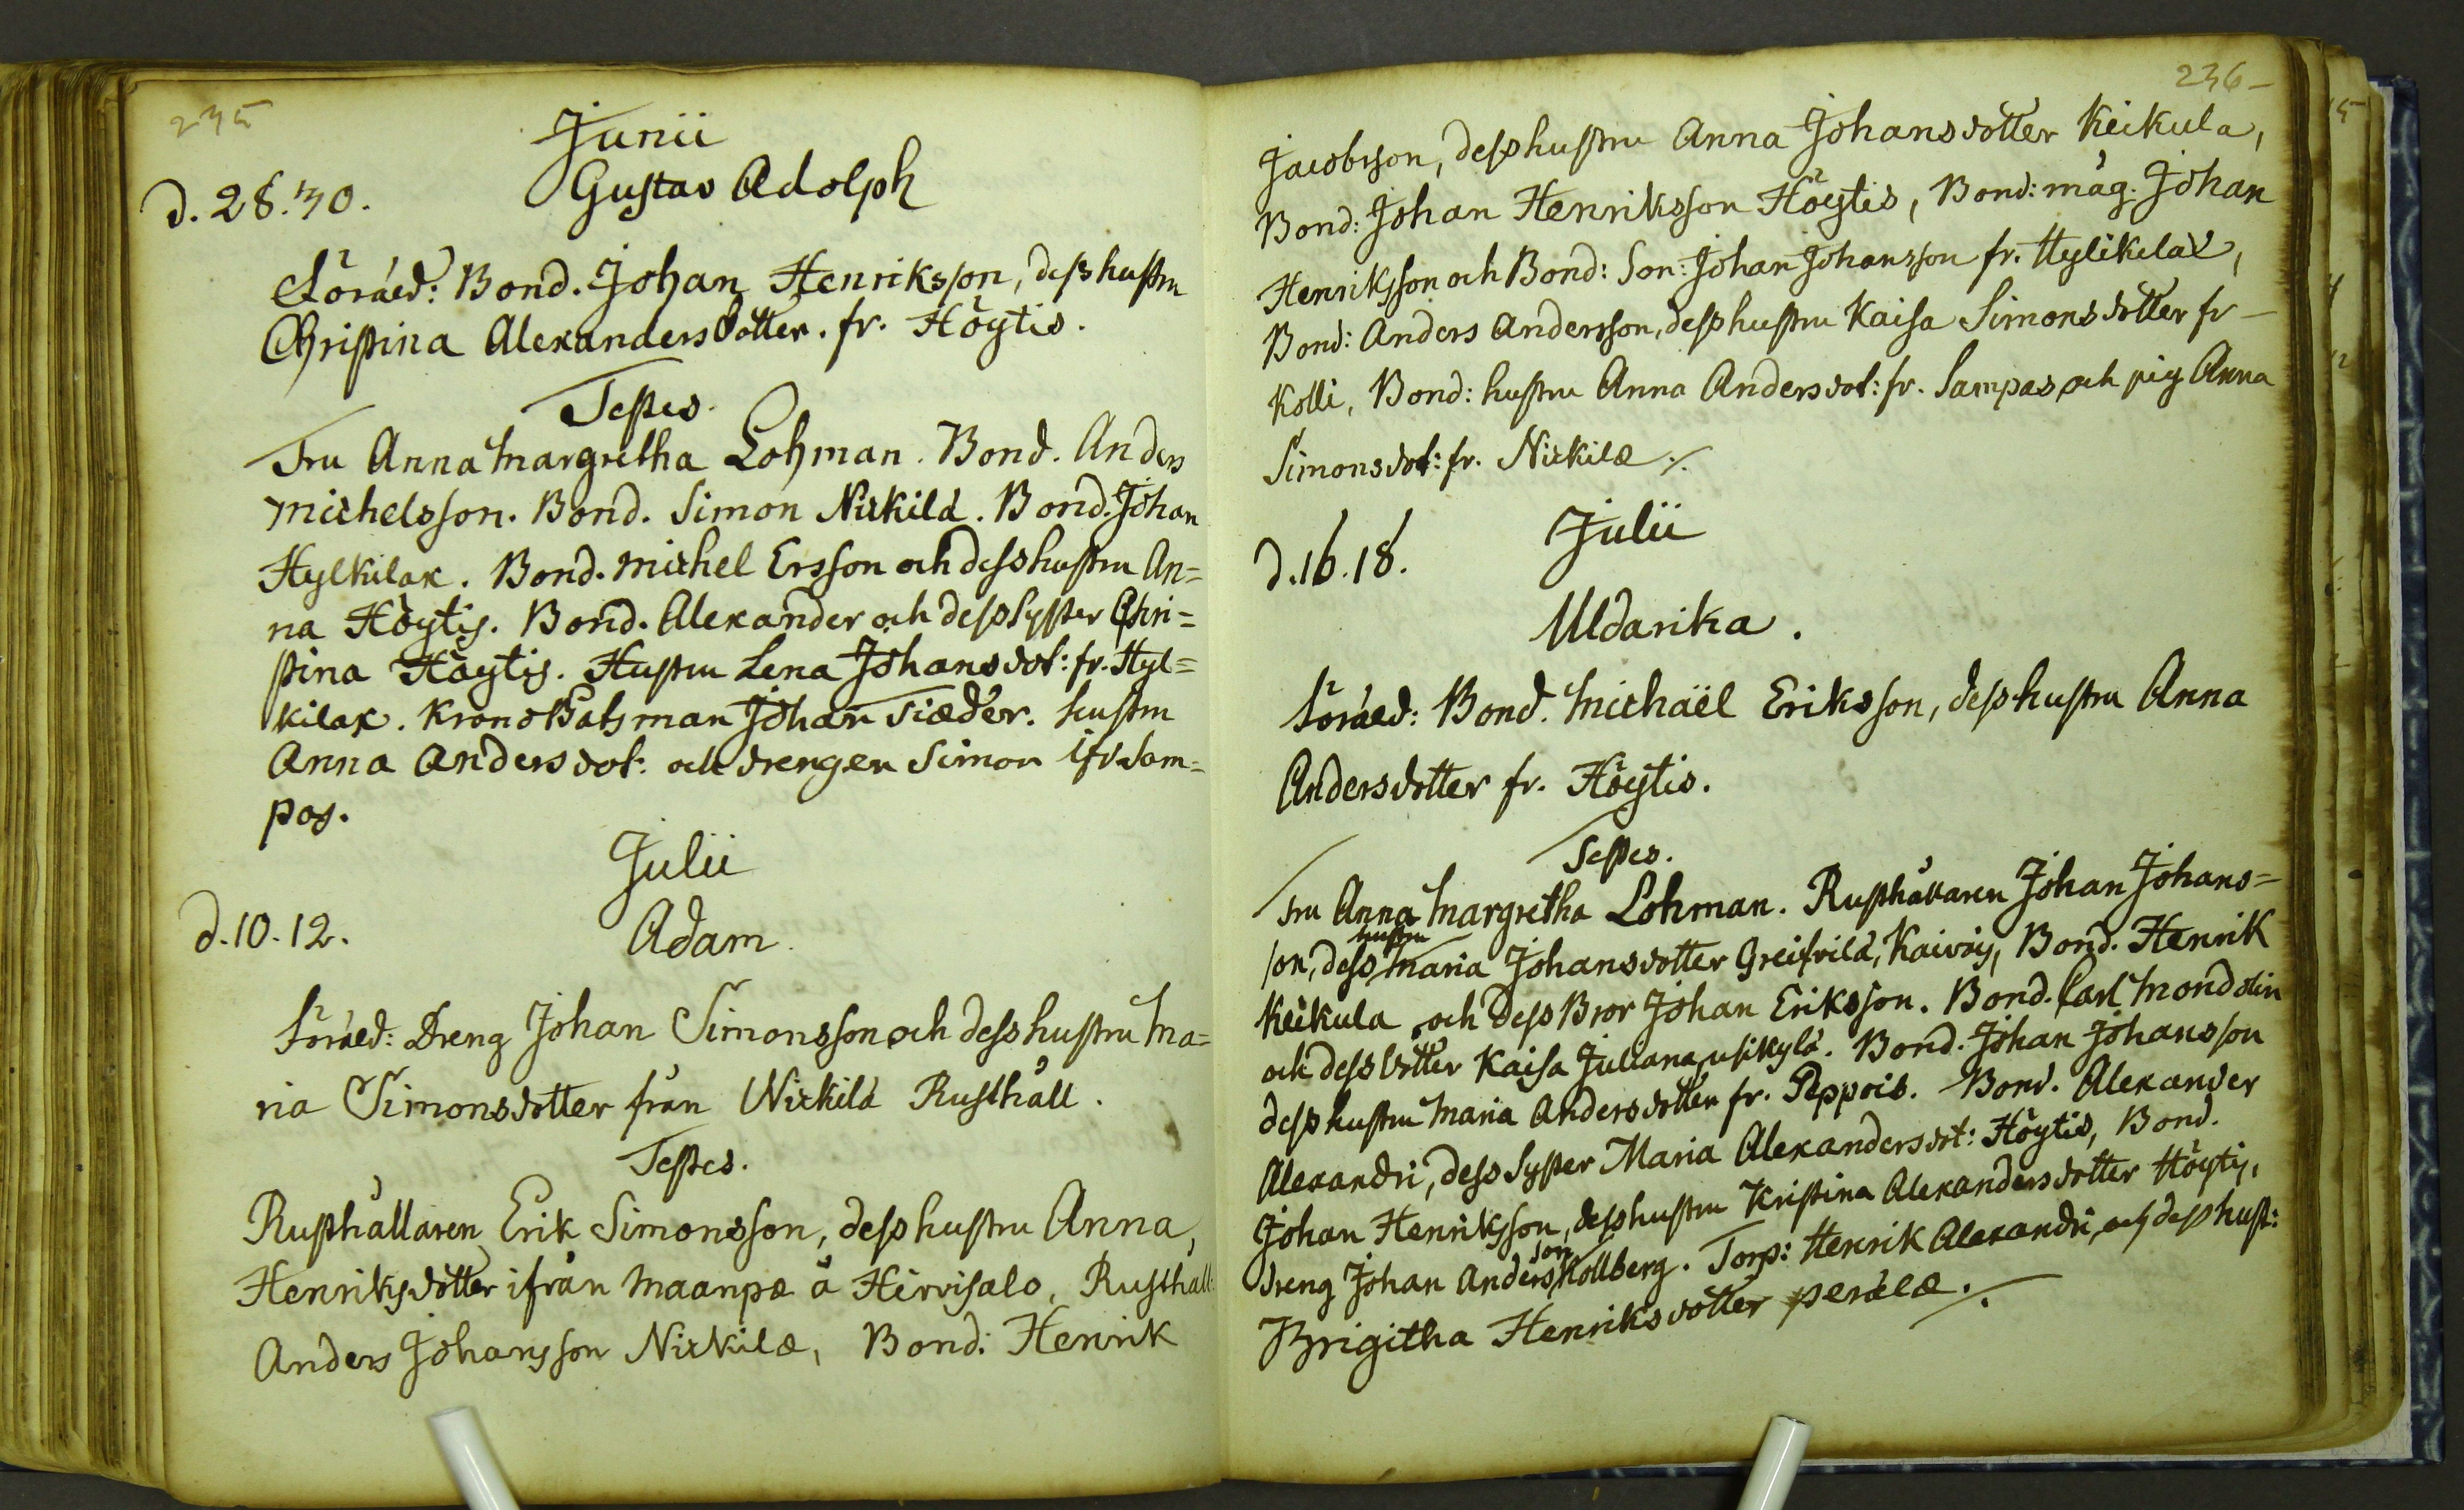 235
Junii
d. 28. 30. Gustav Adolph
Föräld: Bond. Johan Henriksson, dess hustru
Christina Alexandersdotter. fr. Höytis.
Testes.
Fru Anna Margretha Lohman. Bond. Anders
Michelsson. Bond. Simon Nickilä. Bond. Johan
Hylkilax. Bond. Michel Ersson och dess hustru An=
na Höytis. Bond. Alexander och dess Syster Chri=
stina Höytis. Hustru Lena Johansdot: fr. Hyl=
kilax. Krono Båtsman Johan Siæder. hustru
Anna Andersdot: och drengen Simon ifr. Sam=
pos.
Julii
d. 10. 12. Adam.
Föräld: Dreng Johan Simonsson och dess hustru Ma=
ria Simonsdotter från Nickilä Rusthåll.
Testes.
Rusthållaren Erik Simonsson, dess hustru Anna,
Henriksdotter ifrån Maanpæ å Hirvisalo, Rusthåll:
Anders Johansson Nickilæ, Bond: Henrik
236
Jacobsson, dess hustru Anna Johansdotter Keikula,
Bond: Johan Henriksson Höytis, Bond: måg. Johan
Henriksson och Bond: Son: Johan Johansson fr. Hylikilax,
Bond: Anders Andersson, dess hustru Kaisa Simonsdotter fr
Kolli, Bond: hustru Anna Andersdot: fr. Sampas och pig Anna
Simonsdot: fr. Nickilæ ./.
Julii
d. 16. 18.
Uldarika.
Föräld: Bond. Michaël Eriksson, dess hustru Anna
Andersdotter fr. Höytis.
Testes.
Fru Anna Margretha Lohman. Rusthållaren Johan Johans=
son, dess hustru Maria Johansdotter Greifvilä, Kaivoj, Bond. Henrik
Keikula och dess Bror Johan Eriksson. Bond. Carl Mondolin
och dess dotter Kaisa Juliana usikylä. Bond. Johan Johansson
dess hustru Maria Andersdotter fr. Peppois. Bond. Alexander
Alexandri, dess Syster Maria Alexandersdot: Höytis, Bond.
Johan Henriksson, dess hustru Kristina Alexandersdotter Höytis,
dreng Johan Andersson Kollberg. Torp: Henrik Alexandri, och dess hust:
Brigitha Henriksdotter perälæ ./.